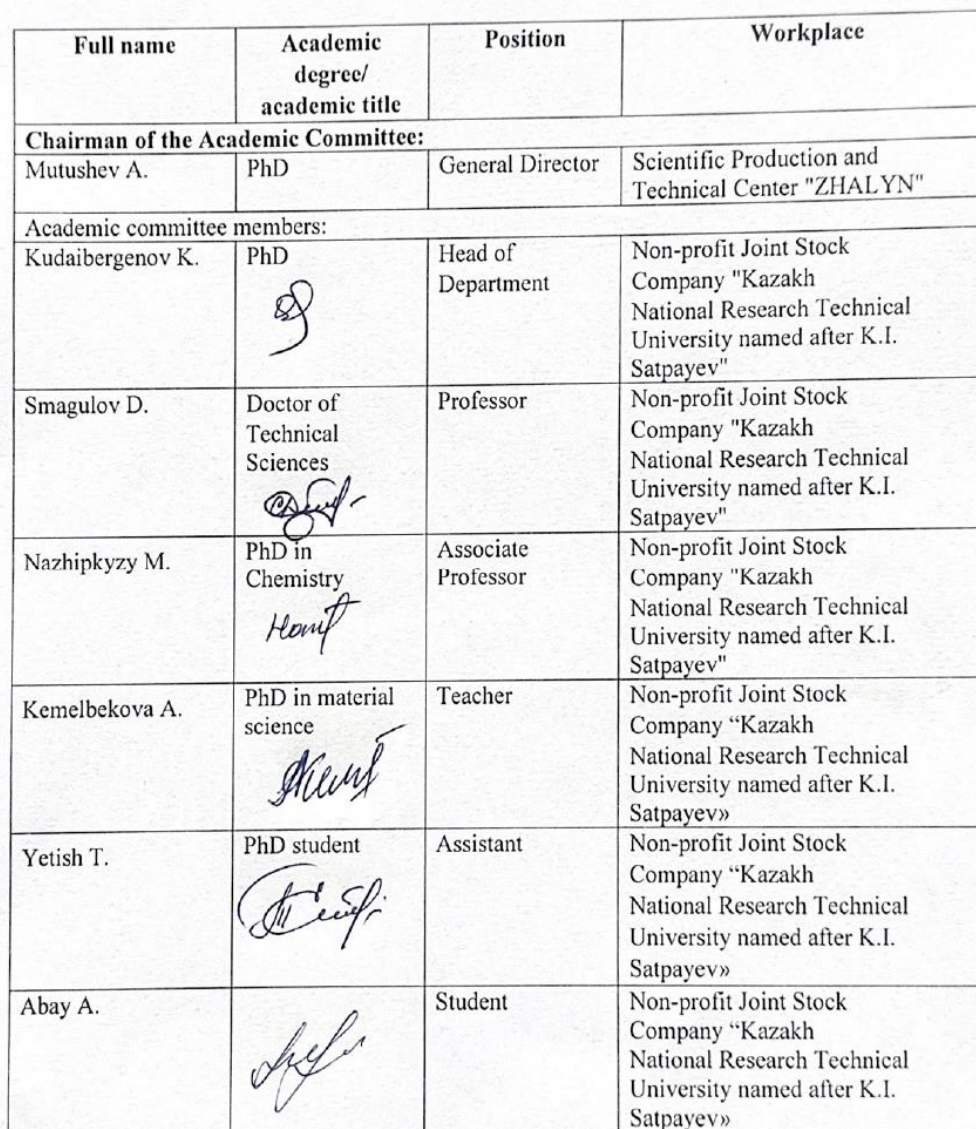 Full name
Academic
degree/
academic title
Position
Workplace
Chairman of the Academic Committee:
Mutushev A.
PhD
General Director
Scientific Production and
Technical Center "ZHALYN"
Academic committee members:
Kudaibergenov K.
PhD
Head of
Department
Non-profit Joint Stock
Company "Kazakh
National Research Technical
University named after K.I.
Satpayev"
Smagulov D.
Doctor of
Technical
Sciences
Professor
Non-profit Joint Stock
Company "Kazakh
National Research Technical
University named after K.I.
Satpayev"
Nazhipkyzy M.
PhD in
Chemistry
Associate
Professor
Non-profit Joint Stock
Company "Kazakh
National Research Technical
University named after K.I.
Satpayev"
Kemelbekova A.
PhD in material
science
Teacher
Non-profit Joint Stock
Company “Kazakh
National Research Technical
University named after K.I.
Satpayev»
Yetish T.
PhD student
Assistant
Non-profit Joint Stock
Company “Kazakh
National Research Technical
University named after K.I.
Satpayev»
Abay A.
Student
Non-profit Joint Stock
Company “Kazakh
National Research Technical
University named after K.I.
Satpayev»